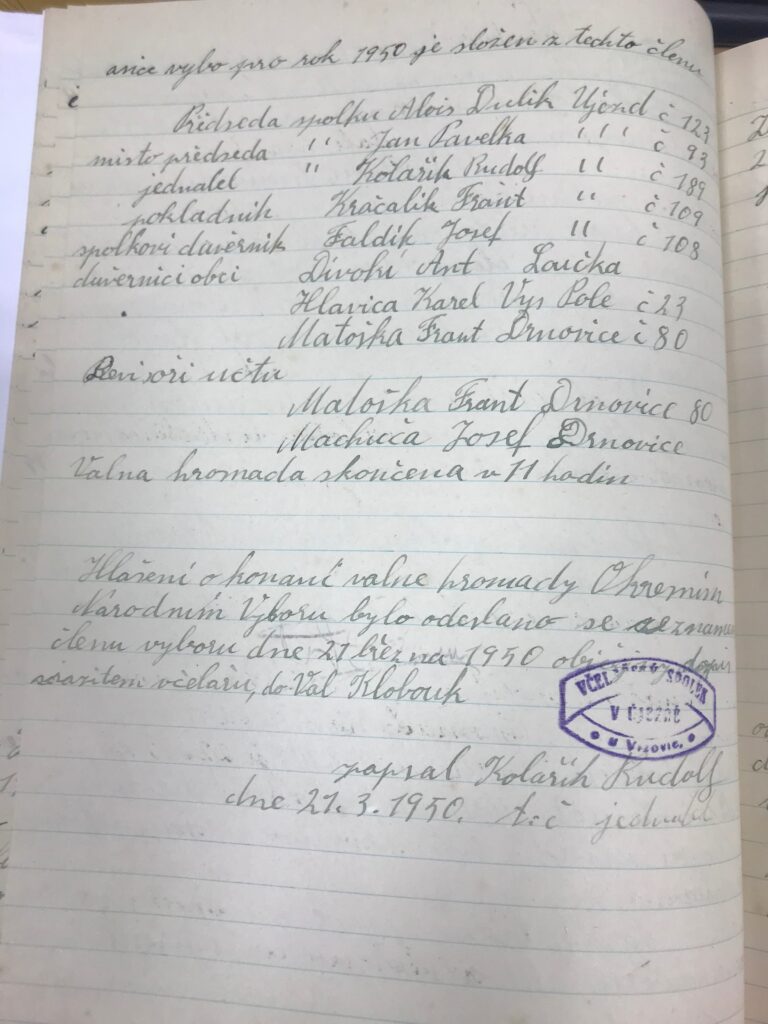 anice vybo pro rok 1950 je složen z techto členu
Předseda spolku Alois Dulik Ujezd č 123
misto předseda " Jan Pavelka " č 93
jednatel " Kolařik Rudolf " č 189
pokladnik Kračalik Frant " č 109
spolkovi duvěrnik Faldik Josef " č 108
duvěrnici obci Divoki Ant Loučka
Hlavica Karel Vys Pole č 23
Matoška Frant Drnovice č 80
Revisoři učtu
Matoška Frant Drnovice 80
Machuča Josef Drnovice
Valna hromada skončena v 11 hodin
Hlašeni o konani valne hromady Okresnim
Narodnim Vyboru bylo odeslano se seznamem
členu vyboru dne 21 března 1950 dopis
svazitem včelařu, do Val Klobouk
VČELAŘSKÝ SPOLEK
V ÚJEZDĚ
U VIZOVIC
zapsal Kolařik Rudolf
dne 21.3.1950. t.č jednatel